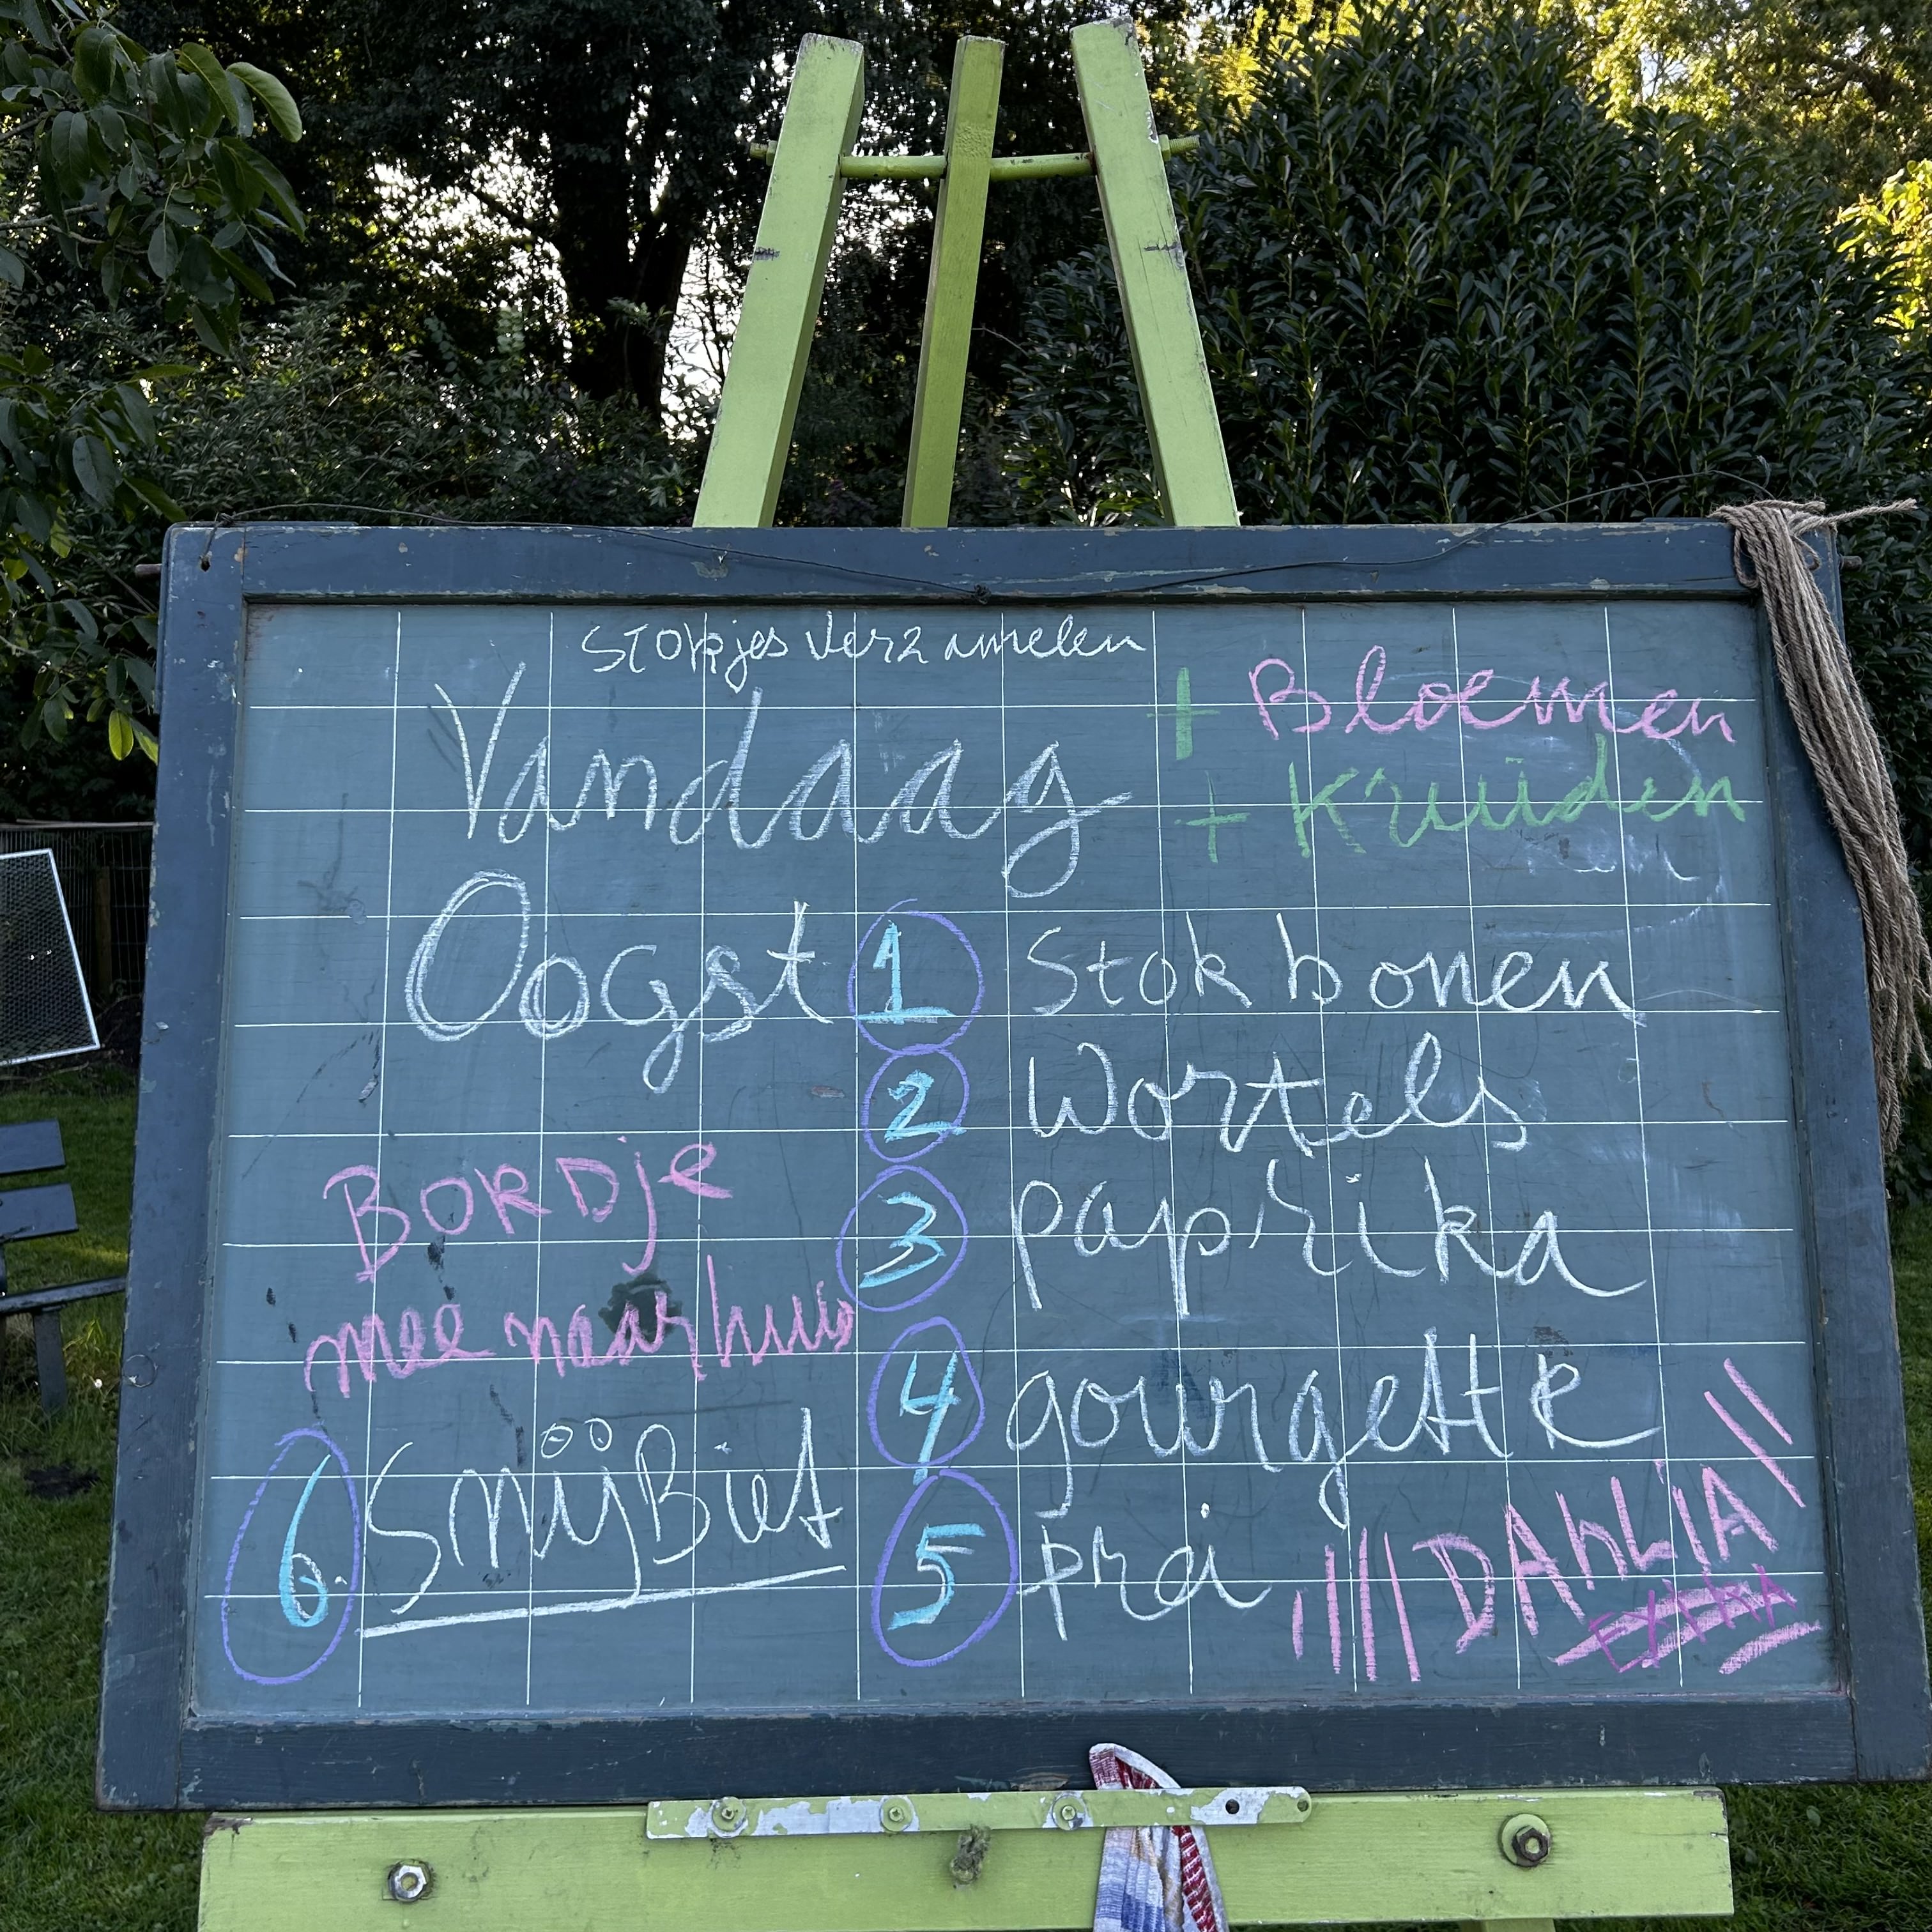 Stokjes verzamelen
Vandaag
+ Bloemen
+ Kruiden
Oogst
1 Stokbonen
2 Wortels
3 paprika
4 gourgette
5 prei
BORDje
mee naar huis
6 SnijBiet
DAhLiA
EXTRA